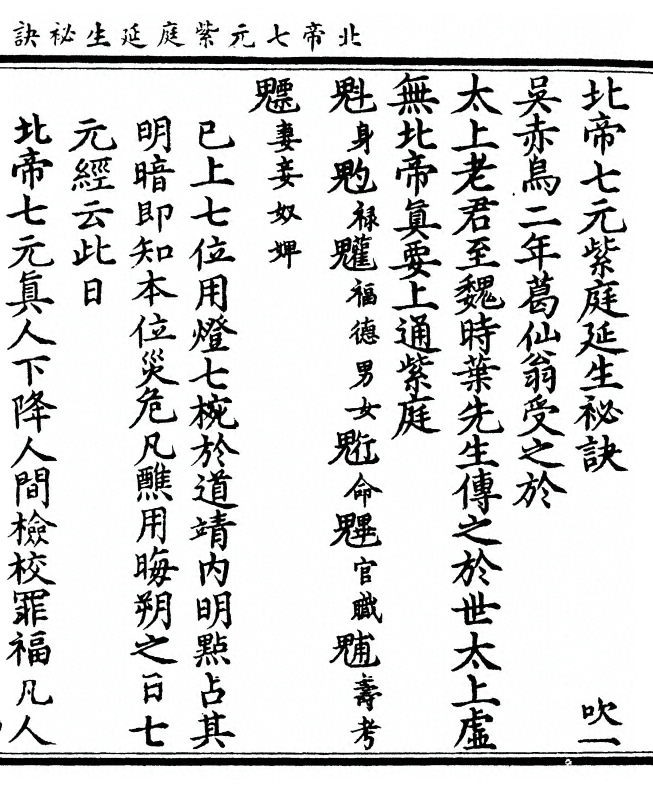 北帝七元紫庭延生祕訣
北帝七元紫庭延生祕訣 吹一
吳赤烏二年葛仙翁受之於
太上老君至魏時葉先生傳之於世太上虛
無北帝眞要上通紫庭
魁身𩲃祿𩵄福德男女䰢命魓官職𩳐壽考
魒妻妾奴婢
已上七位用燈七椀於道靖內明點占其
明暗即知本位災危凡醮用晦朔之日七
元經云此日
北帝七元眞人下降人間檢校罪福凡人